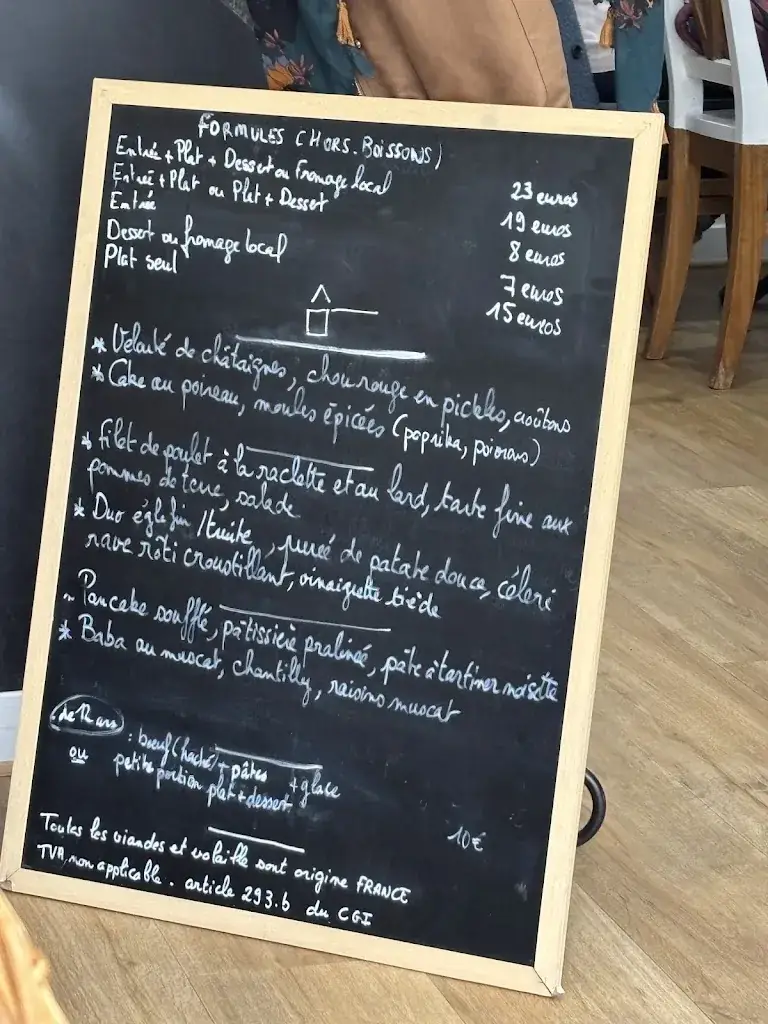 FORMULES (HORS.BOISSONS)
Entrée + Plat + Dessert ou Fromage local 23 euros
Entrée + Plat ou Plat + Dessert 19 euros
Entrée 8 euros
Dessert ou fromage local 7 euros
Plat seul 15 euros
* Velouté de châtaignes, chou rouge en pickles, croûtons
* Cake au poireau, moules épicées (paprika, poivrons)
* Filet de poulet à la raclette et au lard, tarte fine aux
pommes de terre, salade
* Duo églefin / truite, purée de patate douce, céleri
rave rôti croustillant, vinaigrette tiède
~ Pancake soufflé, pâtissière pralinée, pâte à tartiner noisette
* Baba au muscat, chantilly, raisins muscat
- de 12 ans : boeuf (haché) + pâtes + glace
ou petite portion plat + dessert 10€
Toutes les viandes et volaille sont origine FRANCE
TVA, non applicable. article 293.b du CGI